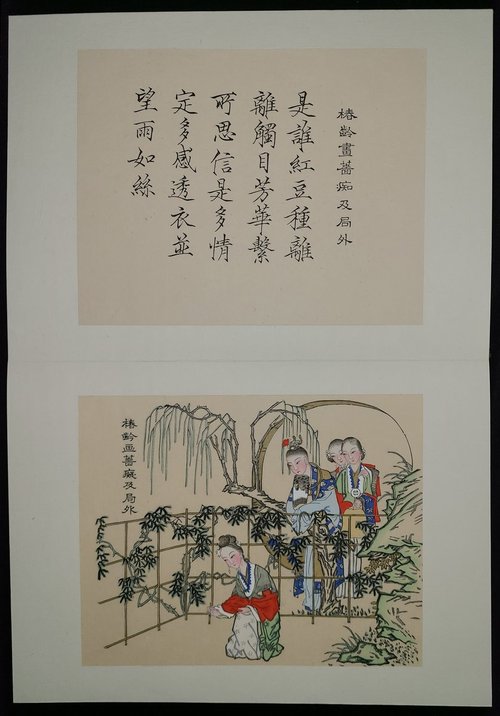 椿齡畫薔痴及局外
是誰紅豆種離
離觸目芳華繫
所思信是多情
定多感透衣並
望雨如絲
椿齡画薔癡及局外